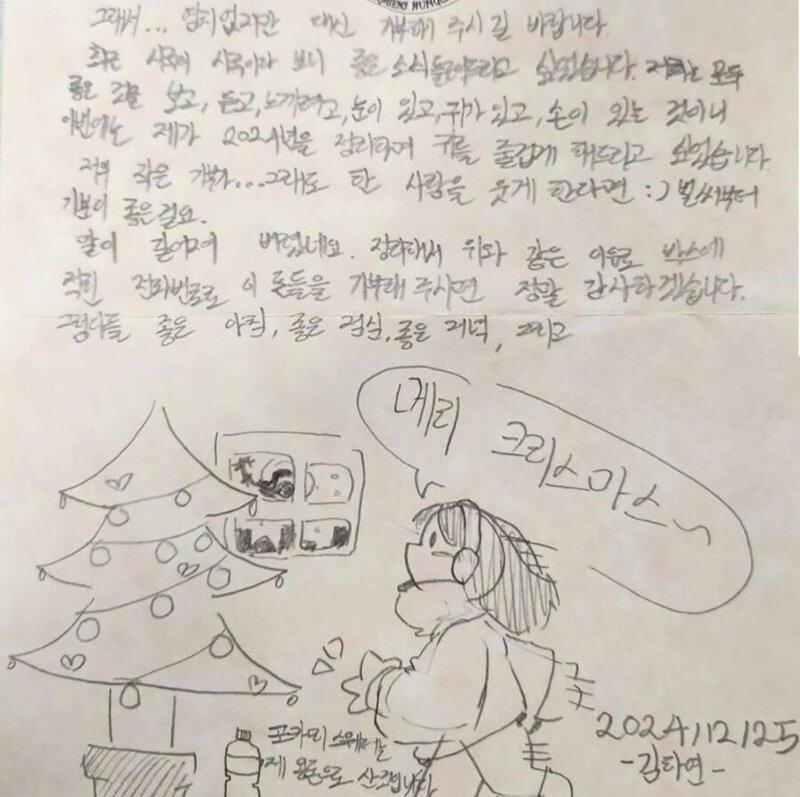 MIENS NUNQU
그래서... 염치없지만 대신 기부해 주시길 바랍니다.
최근 시국이 시국이다 보니 좋은 소식 들려드리고 싶었습니다. 저희는 모두
좋은 것을 보고, 듣고, 느끼려고, 눈이 있고, 귀가 있고, 손이 있는 것이니
이번에는 제가 2024년을 정리하며 귀를 즐겁게 해드리고 싶었습니다.
저의 작은 기부가...그래도 한 사람을 웃게 한다면 :) 벌써부터
기분이 좋은걸요.
말이 길어져 버렸네요. 정리해서 위와 같은 이유로 박스에
적힌 전화번호로 이 돈들을 기부해 주시면 정말 감사하겠습니다.
그럼 다들 좋은 아침, 좋은 점심, 좋은 저녁, 그리고
메리 크리스마스~
포카리 스웨트는
제 용돈으로 산것입니다
2024/12/25
-김타연-